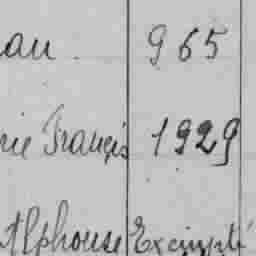 au 965
rie Françis 1929
Alphonse Exempté